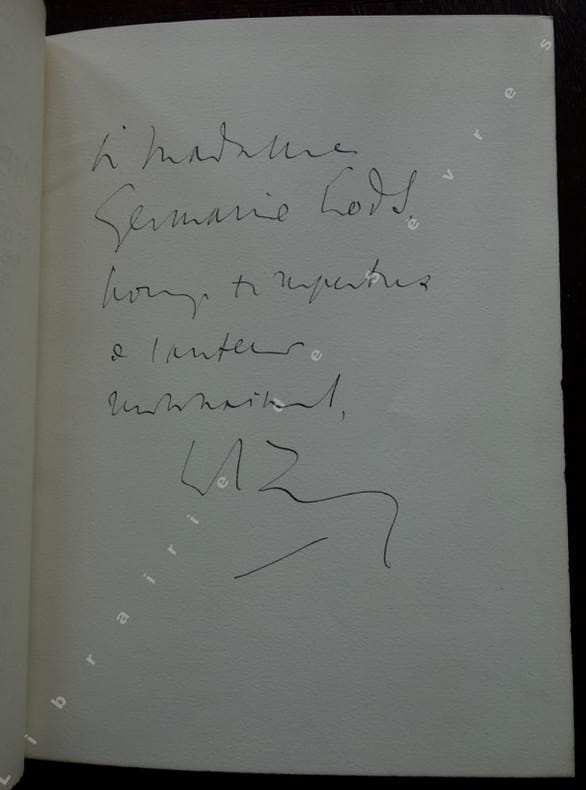 à Madame
Germaine Lods,
hommage très respectueux
de l'auteur
reconnaissant,
Librairie de sèvres